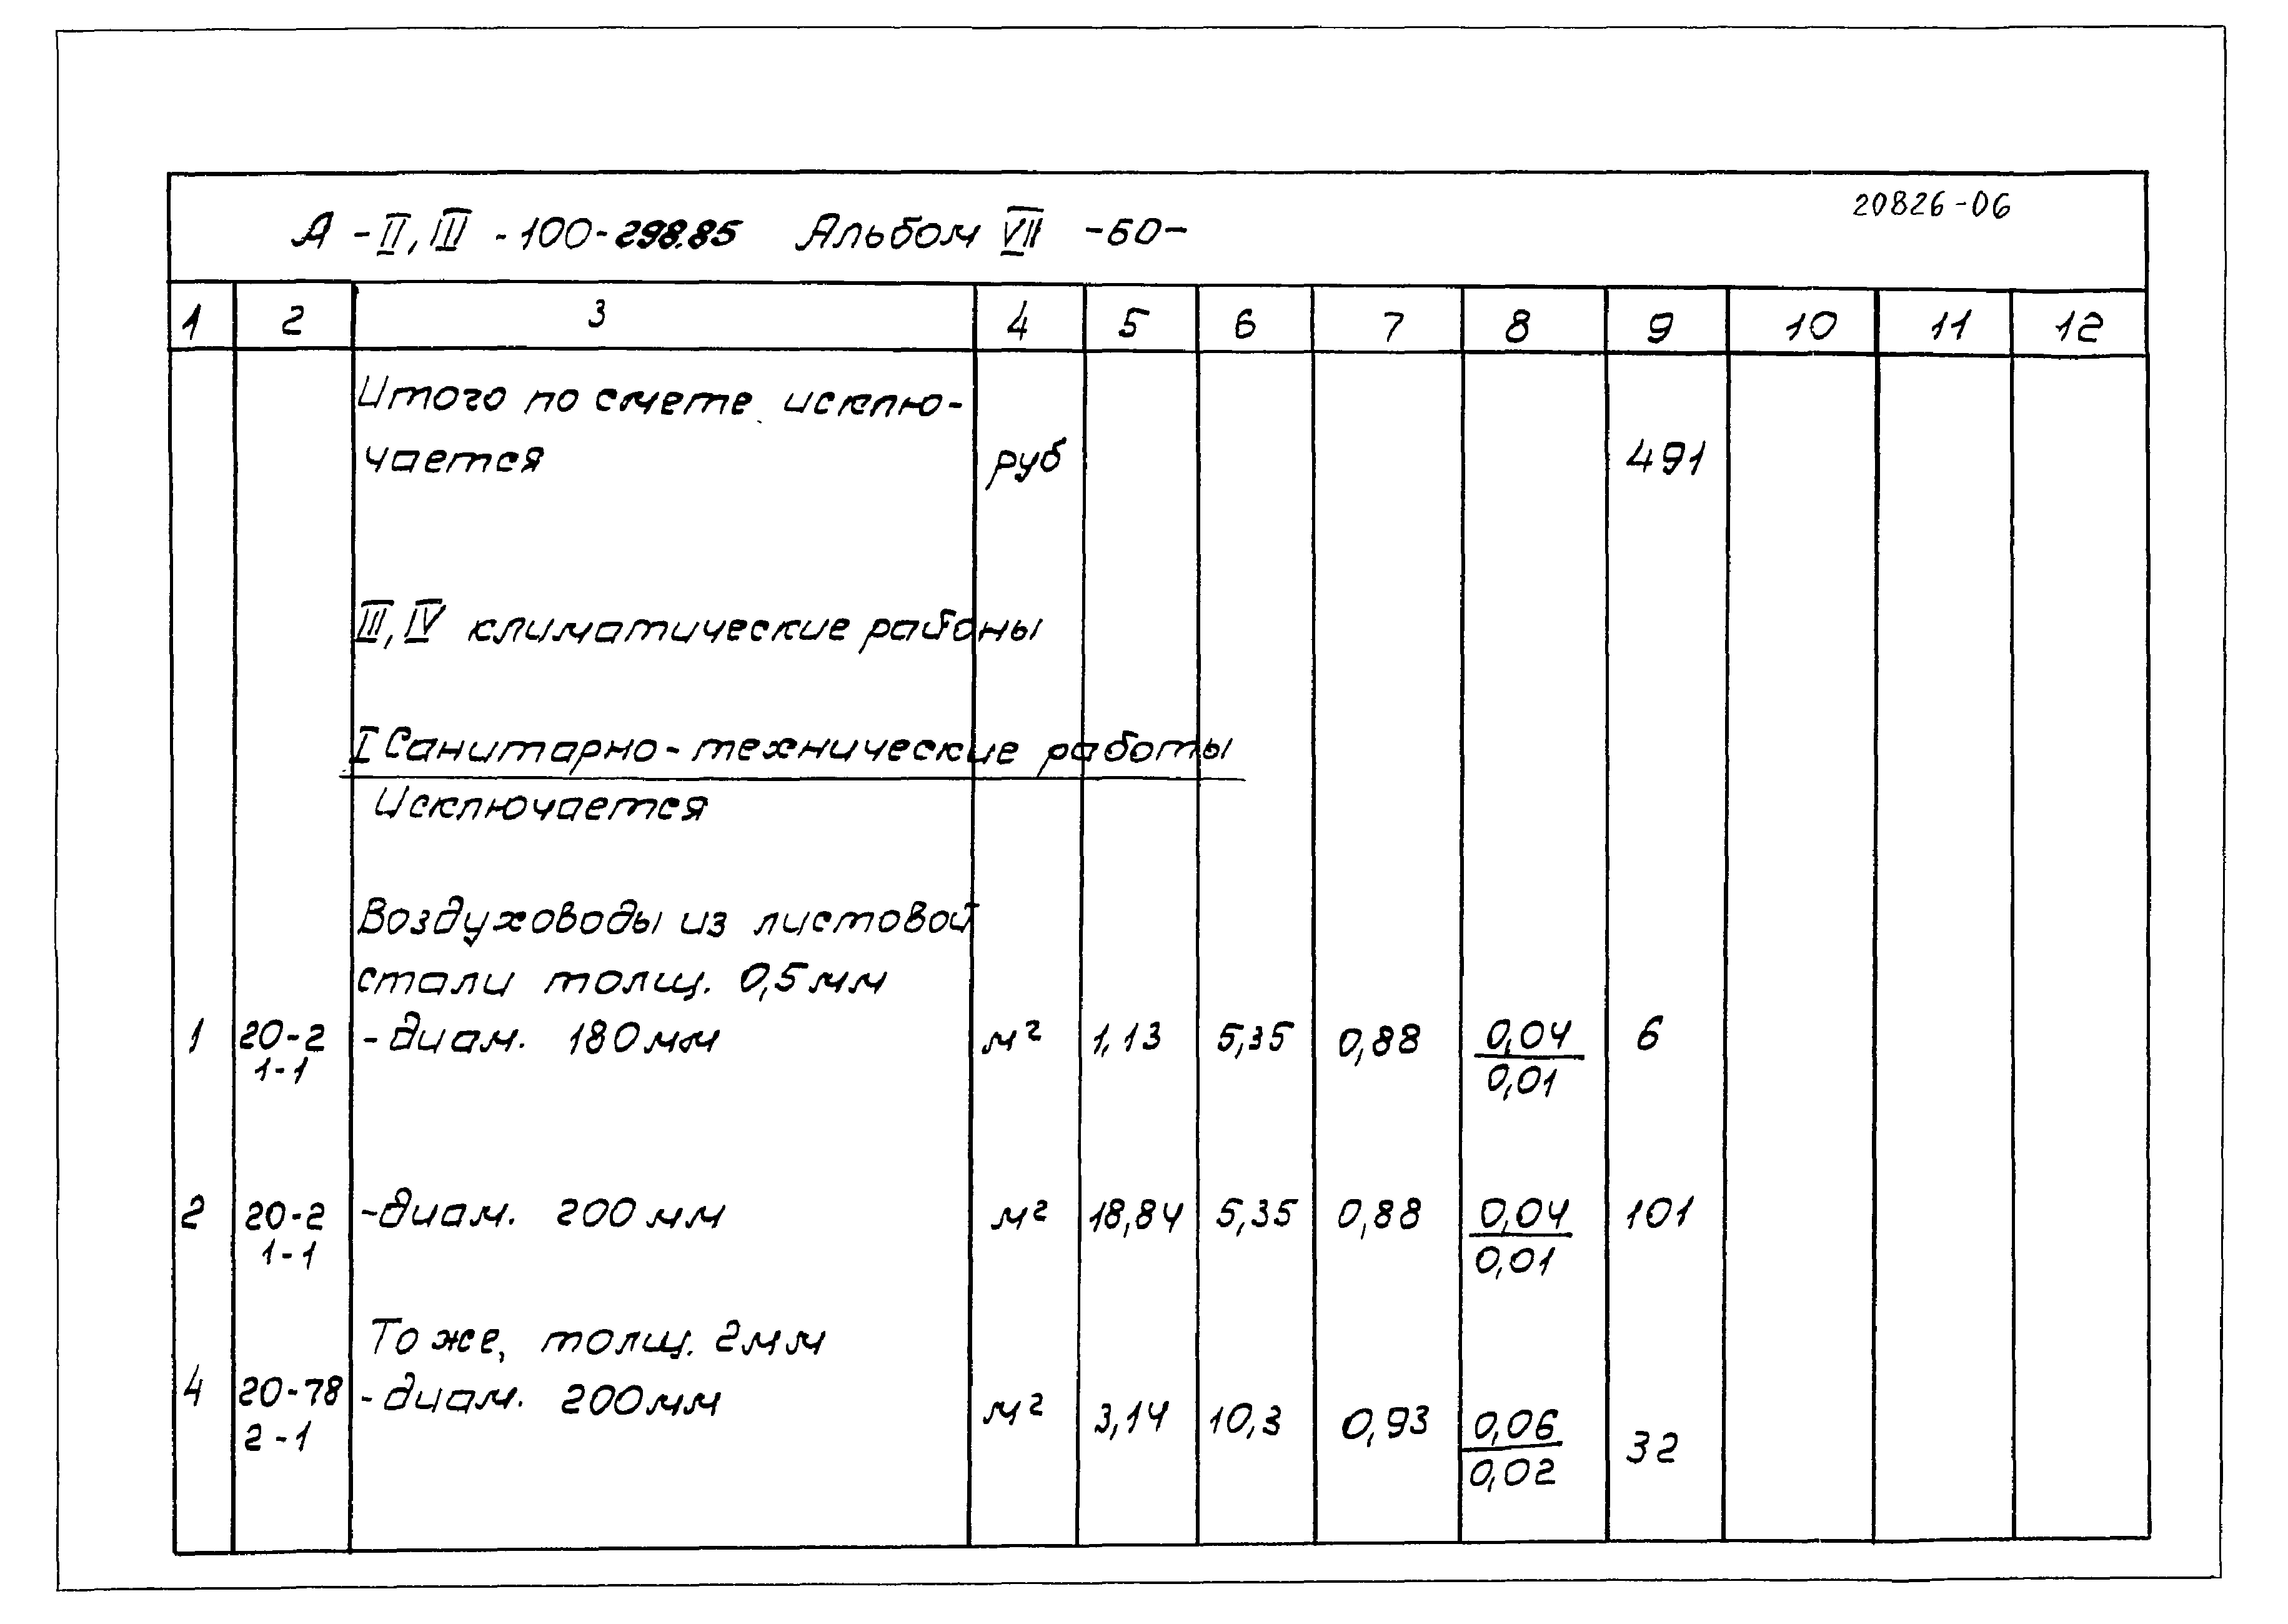 20826-06
А - II, III - 100-298.85 Альбом VII -60-
1 2 3 4 5 6 7 8 9 10 11 12
Итого по смете исклю-
чается руб 491
III, IV климатические районы
I Санитарно-технические работы
Исключается
Воздуховоды из листовой
стали толщ. 0,5 мм
1 20-2 -диам. 180 мм м² 1,13 5,35 0,88 0,04 6
1-1 0,01
2 20-2 -диам. 200 мм м² 18,84 5,35 0,88 0,04 101
1-1 0,01
То же, толщ. 2 мм
4 20-78 -диам. 200 мм м² 3,14 10,3 0,93 0,06 32
2-1 0,02